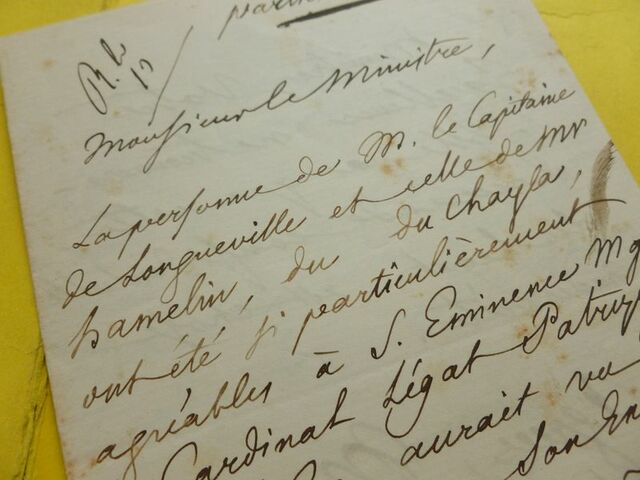 R. le
17
Monsieur le Ministre,
La personne de M. le Capitaine
de Longueville et celle de Mr
hamelin, du du chayla,
ont été si particulièrement
agréables à S. Eminence Mg
Cardinal Légat Patrizi
aurait vu
Son Em